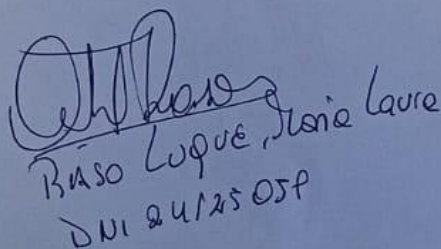 RIASO LUQUE, Maria Laura
DNI 24125058